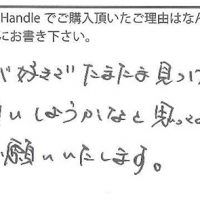 Handleでご購入頂いたご理由はなん
にお書き下さい。
が好きでたまたま見つけ
いしようかなと思って
お願いいたします。